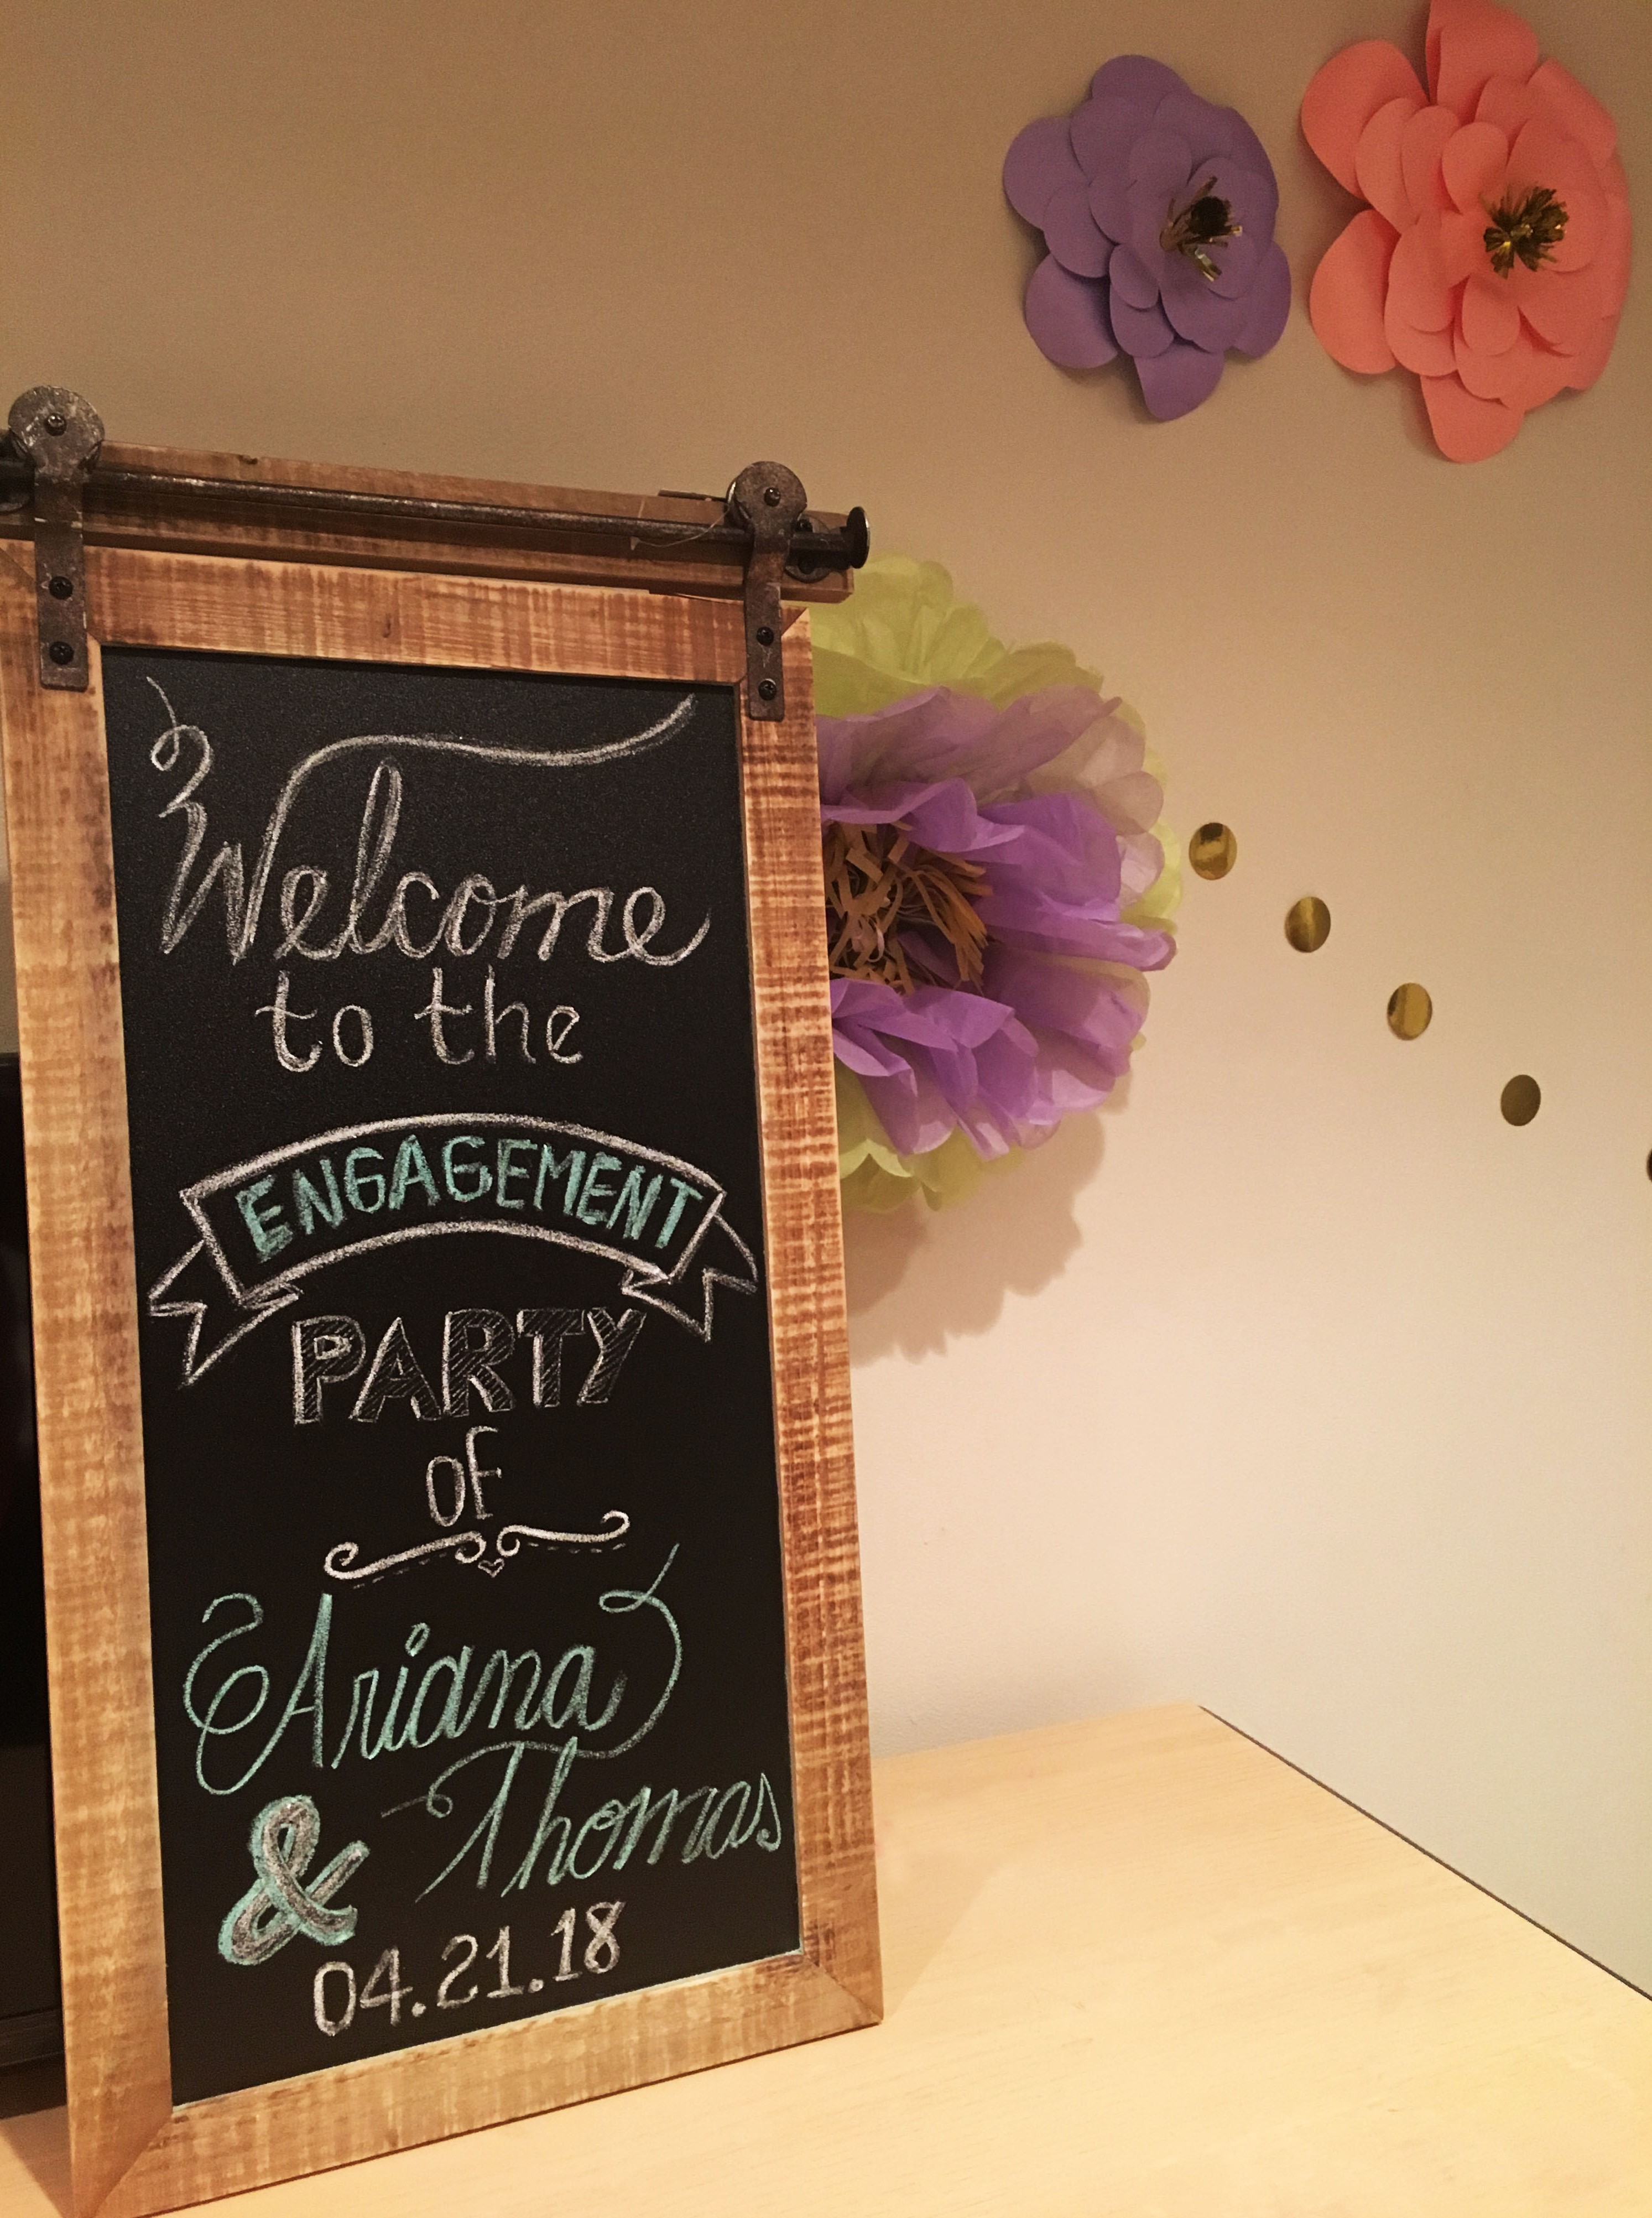 Welcome
to the
ENGAGEMENT
PARTY
OF
Ariana
& Thomas
04.21.18